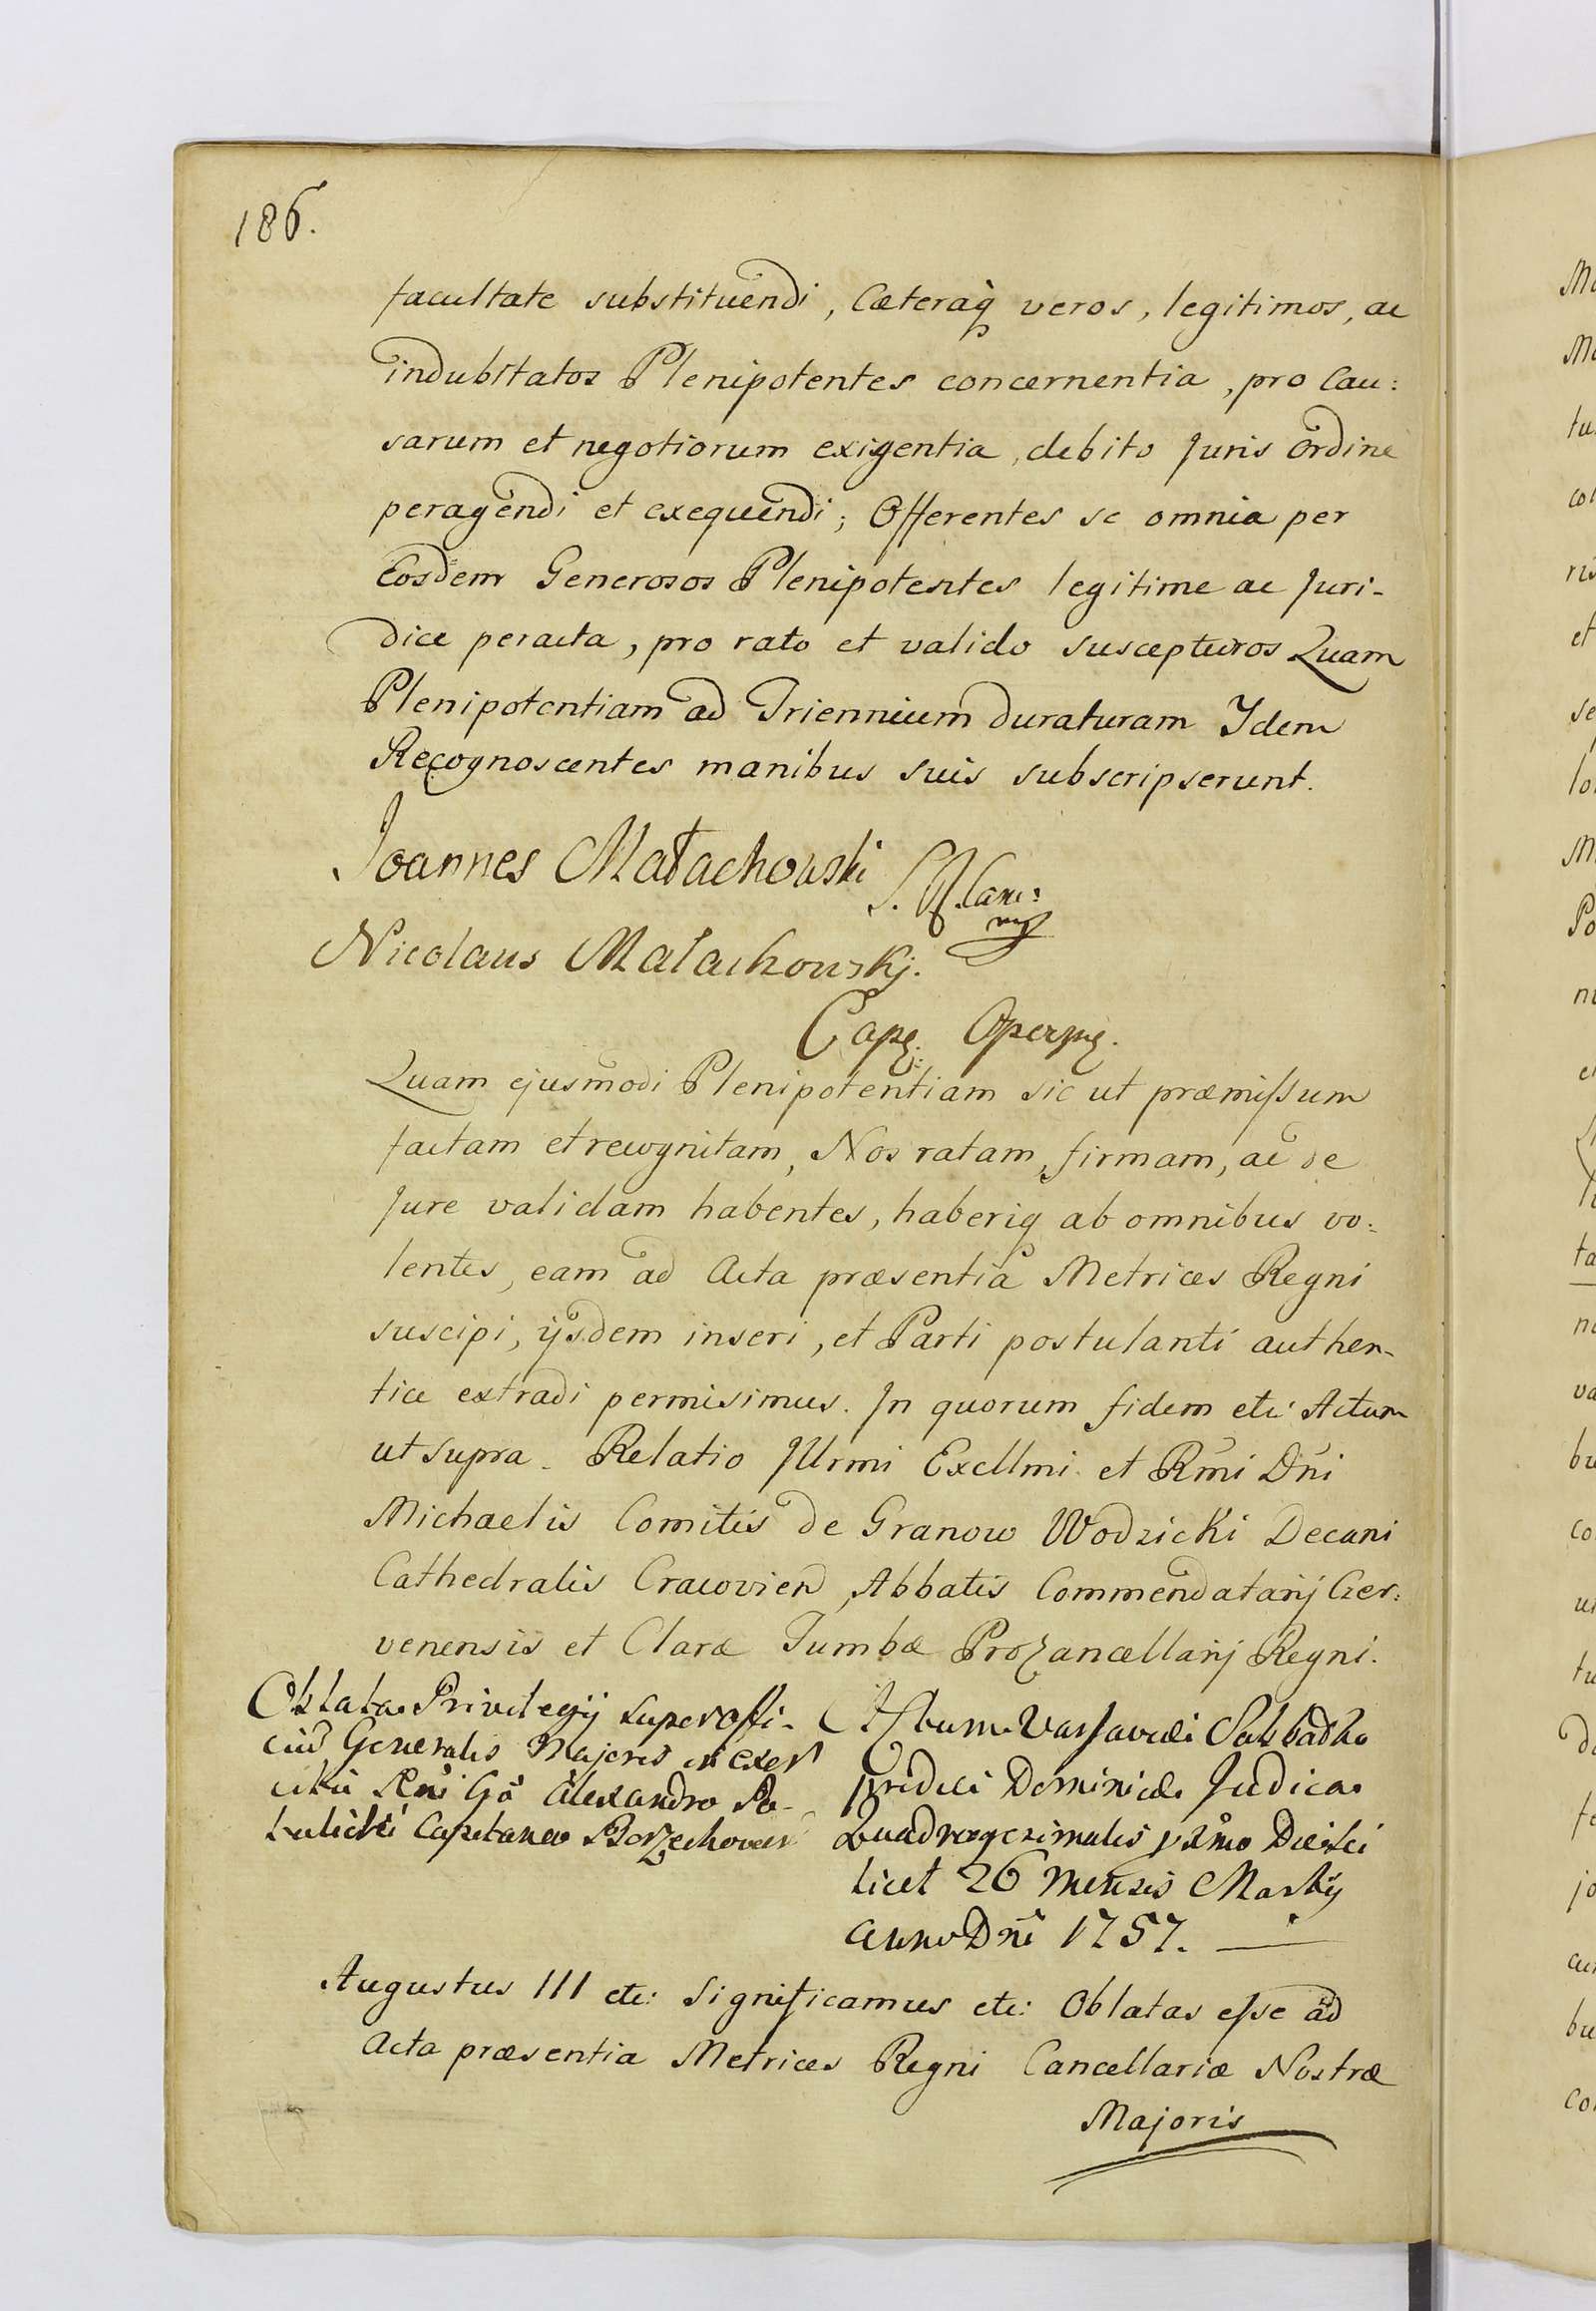 186.
facultate substituendi, Cæteraq veros, legitimos, ac
indubitatos Plenipotentes concernentia, pro Cau:
sarum et negotiorum exigentia, debito Juris Ordine
peragendi et exequendi; Offerentes se omnia per
Eosdem Generosos Plenipotentes legitime ac Juri-
dice peracta, pro rato et valido suscepturos Quam
Plenipotentiam ad Triennium duraturam Idem
Recognoscentes manibus suis subscripserunt.
Joannes Małachowski S. R. Canc:
mp
Nicolaus Małachowskj.
Cap: Opczn.
Quam ejusmodi Plenipotentiam sic ut præmissum
factam et recognitam, Nos ratam, firmam, ac de
Jure validam habentes, haberiq ab omnibus vo:
lentes, eam ad Acta præsentia Metrices Regni
suscipi, ijsdem inseri, et Parti postulanti authen-
tice extradi permisimus. In quorum fidem etc Actum
ut supra. Relatio Illrmi Excllmi et Rmi Dni
Michaelis Comitis de Granow Wodzicki Decani
Cathedralis Cracovien, Abbatis Commendatarij Czer:
venensis et Claræ Tumbæ Procancellarij Regni.
Oblata Privilegij super offi-
ciu Generalis Majoris in exer
citu Gö Alexandro Po-
tulicki Capitaneo Borzechovien
Actum Varsaviæ Sabbatho
pridiei Dominicæ Judica
Quadragesimalis primo Die sci
licet 26 Mensis Martij
Anno Dni 1757.
Augustus III etc: Significamus etc: Oblatas esse ad
Acta præsentia Metrices Regni Cancellariæ Nostræ
Majoris